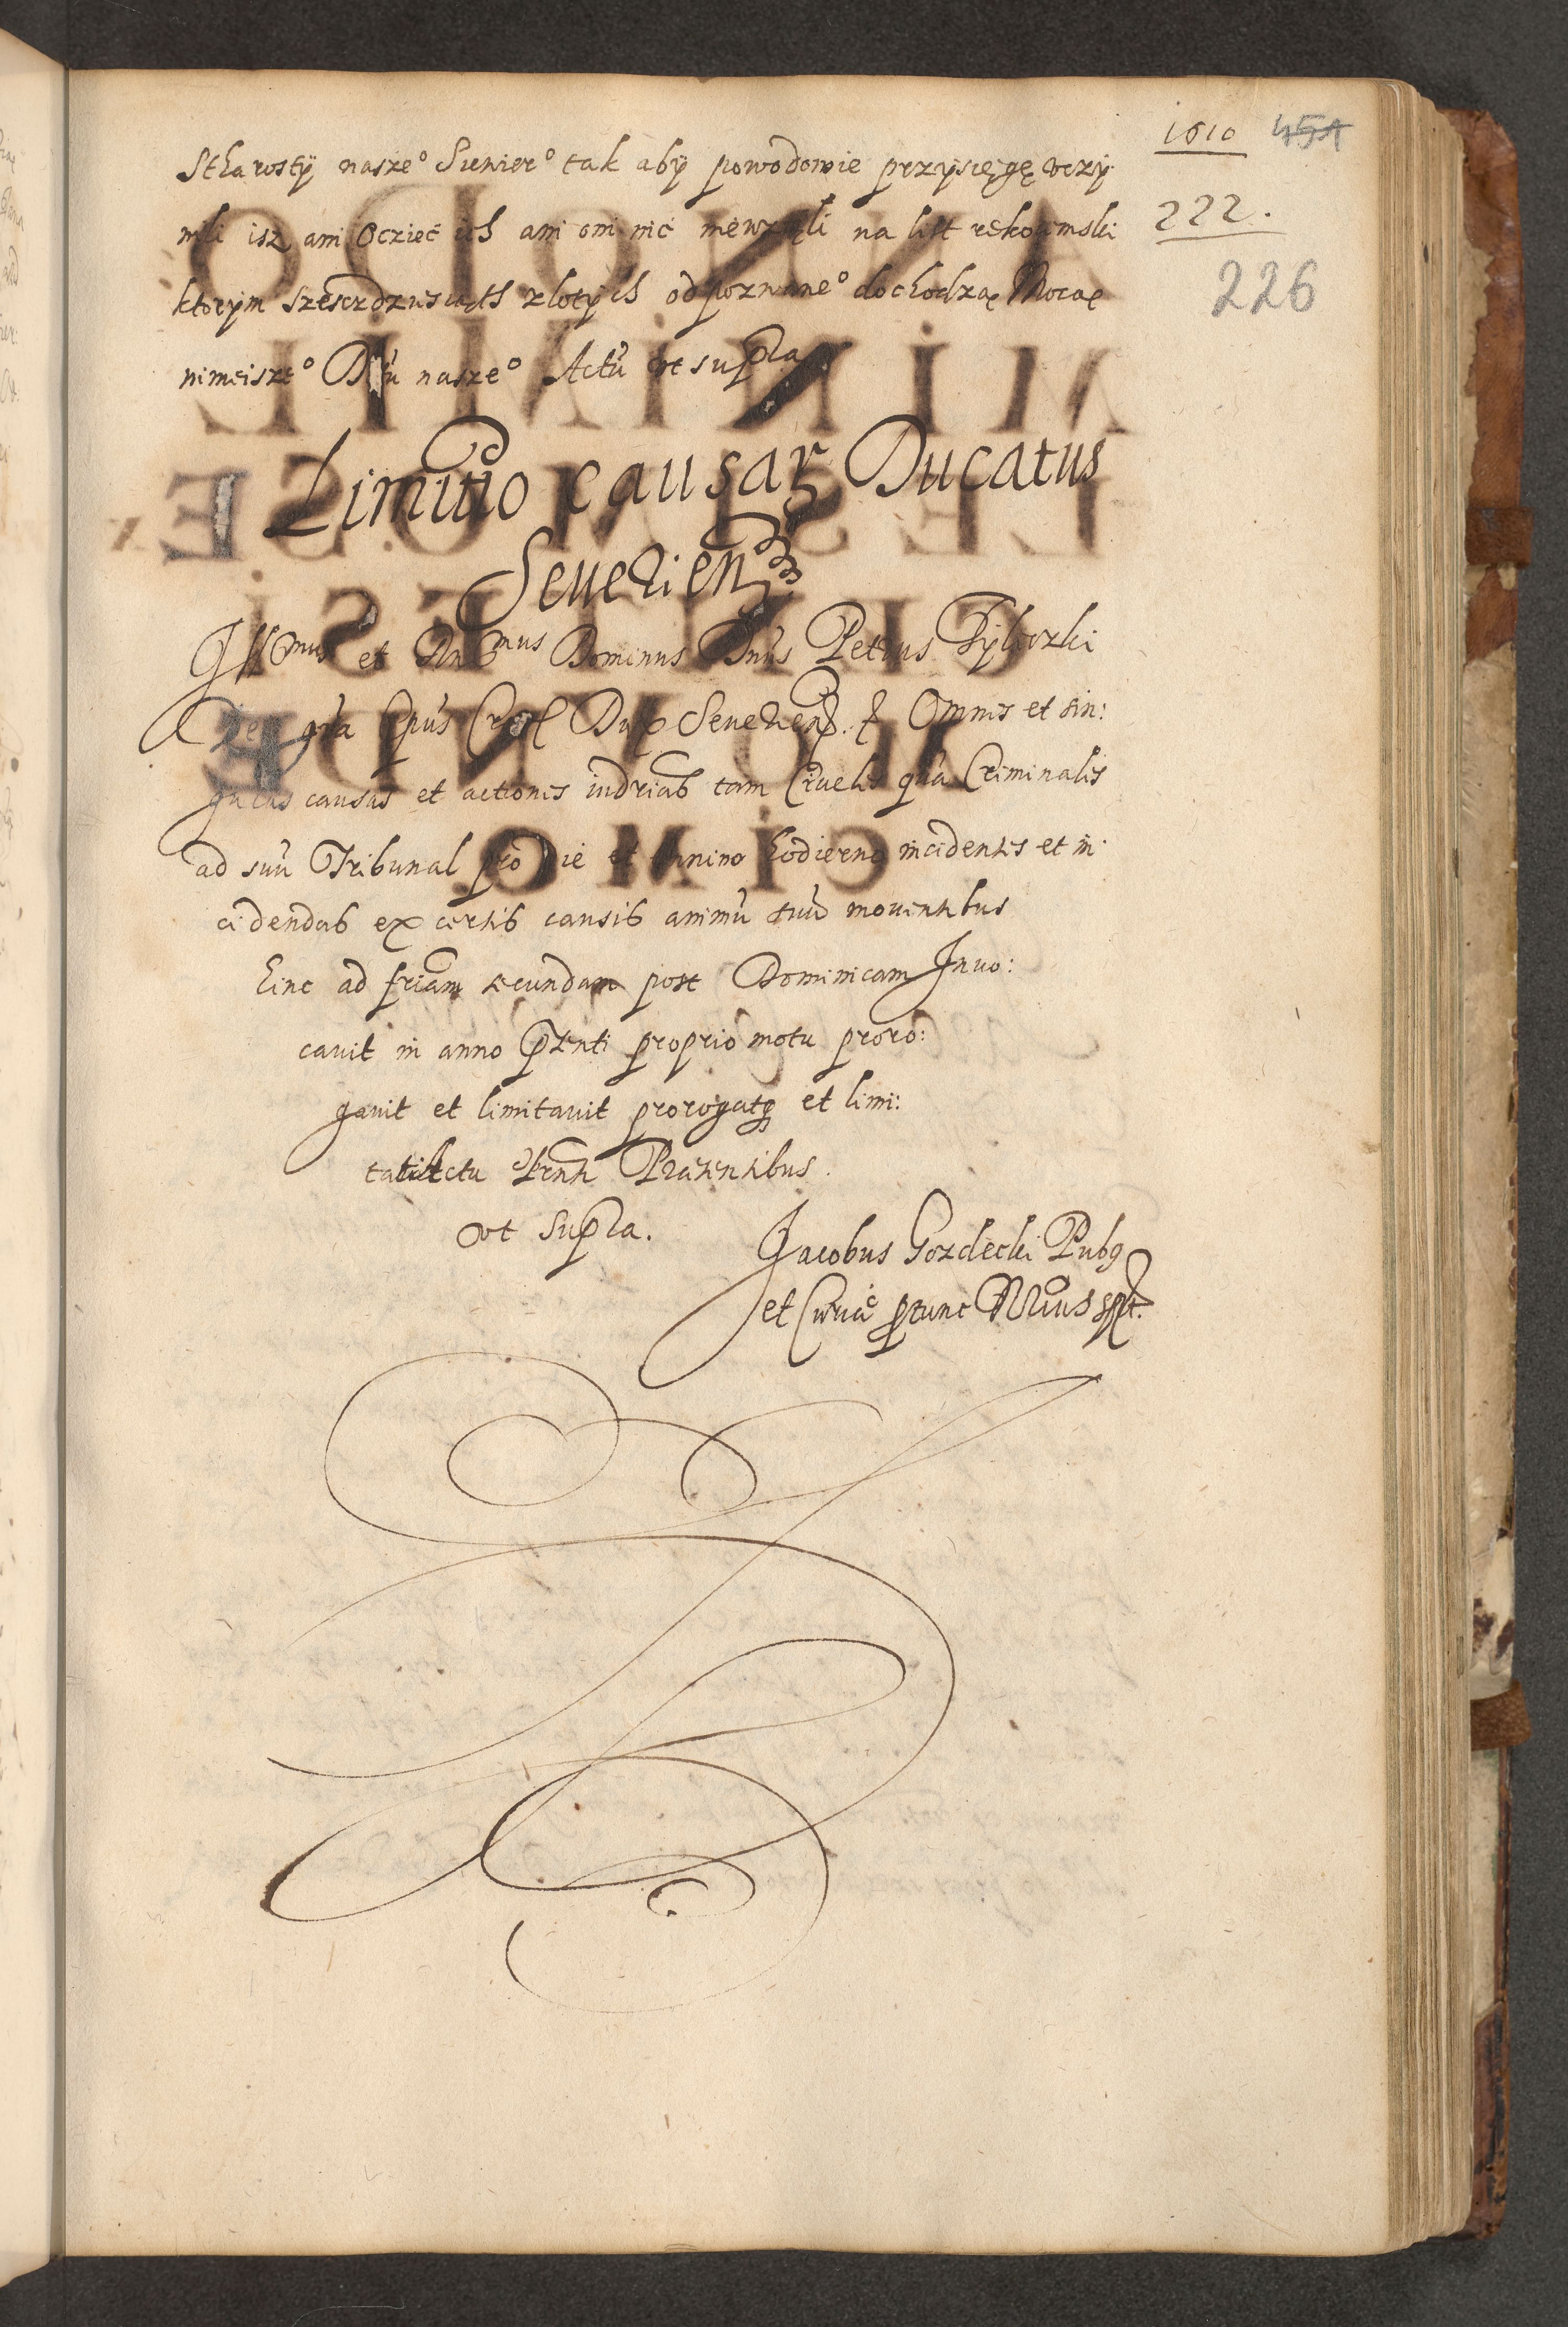 1610 451
222.
226
Stharostÿ nasze° Siewier° tak abÿ powodowie przÿsięgę vczÿ
nili isz ani Ocziec ich ani oni nic niewzięli na list
ktorÿm szesczdziesiąth zlotÿch od poznane° dochodzą Mocą
nineisze° nasze° Actũ vt supra
Limitio causar Ducatus
Seuerien
Illmus et Rndmus Dominus Dnus Petrus Tÿliczki
Dei gra Epus Crac Dux Seuerien. Omnes et sin:
gulas causas et actiones indriab tam Ciueles qua Criminales
ad suũ Tribunal pro die et termino hodierno incidentes et in
cidendas ex certis causis animũ suũ mouentibus
hinc ad feriam secundam post Dominicam Inuo:
cauit in anno pñti proprio motu proro:
gauit et limitauit prorogatq et limi:
tat Actu Pñti Præsentibus
vt supra.
Jacobus Gorzdecki Pubg
et Curiæ ptunc Notrius sspt.
ANNO DO
MINI MILE
LESIMO SE
CENTESI
MO VNDE
CIMO.